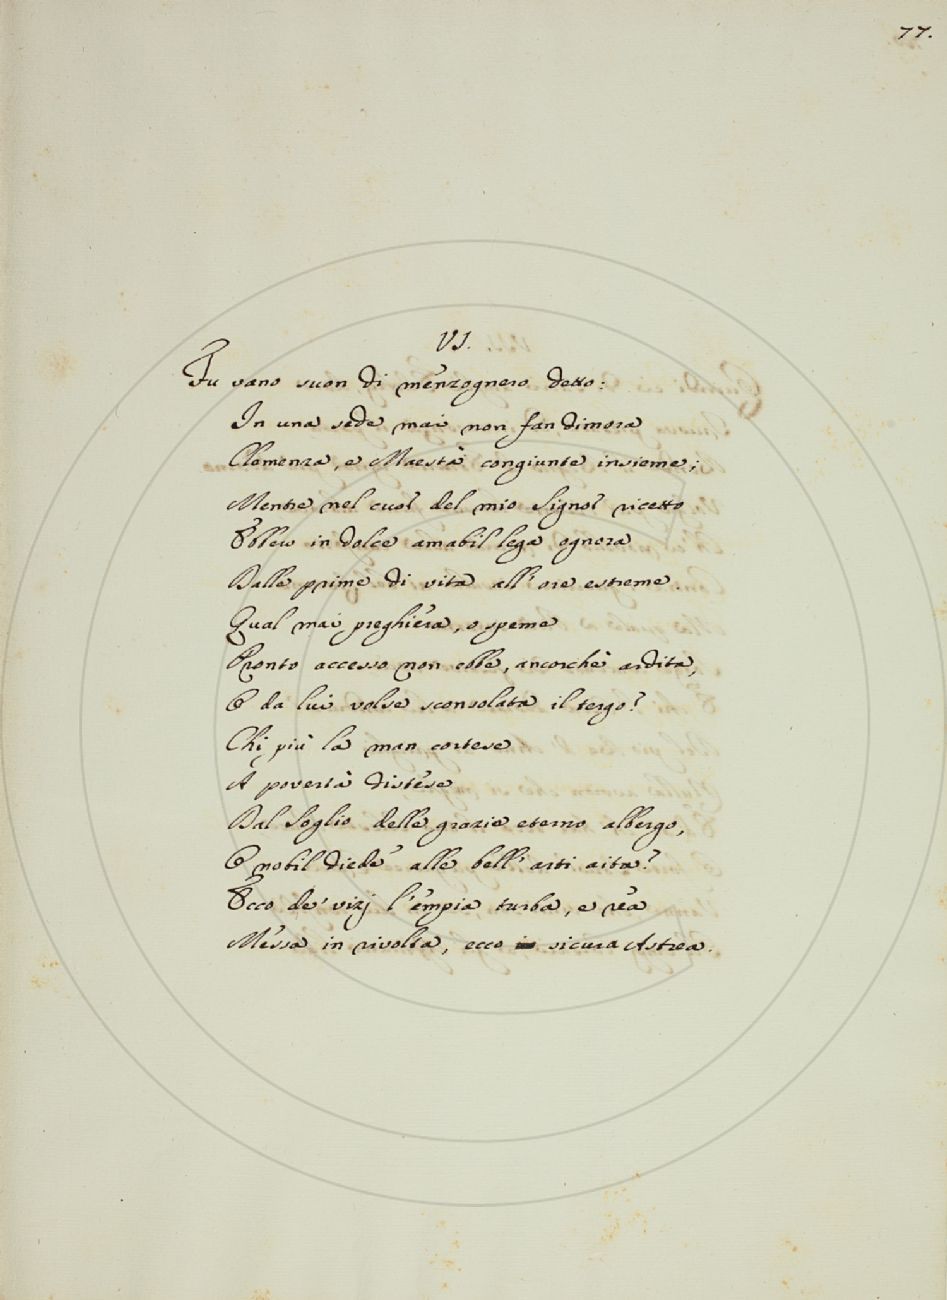 77.
VI.
Fu vano suon di menzognero detto:
In una sede mai non fan dimora
Clemenza, e Maestà congiunte insieme;
Mentre nel cuor del mio Signor ricetto
Ebber in dolce amabil lega ognora
Dalle prime di vita all'ore estreme.
Qual mai preghiera, o speme
Pronto accesso non ebbe, ancorchè ardita,
E da lui volse sconsolata il tergo?
Chi più la man cortese
A povertà distese
Dal Soglio delle grazie eterno albergo,
E nobil diede alle bell'arti aita?
Ecco de' vizj l'empia turba, e rea
Messa in rivolta, ecco sicura Astrea.